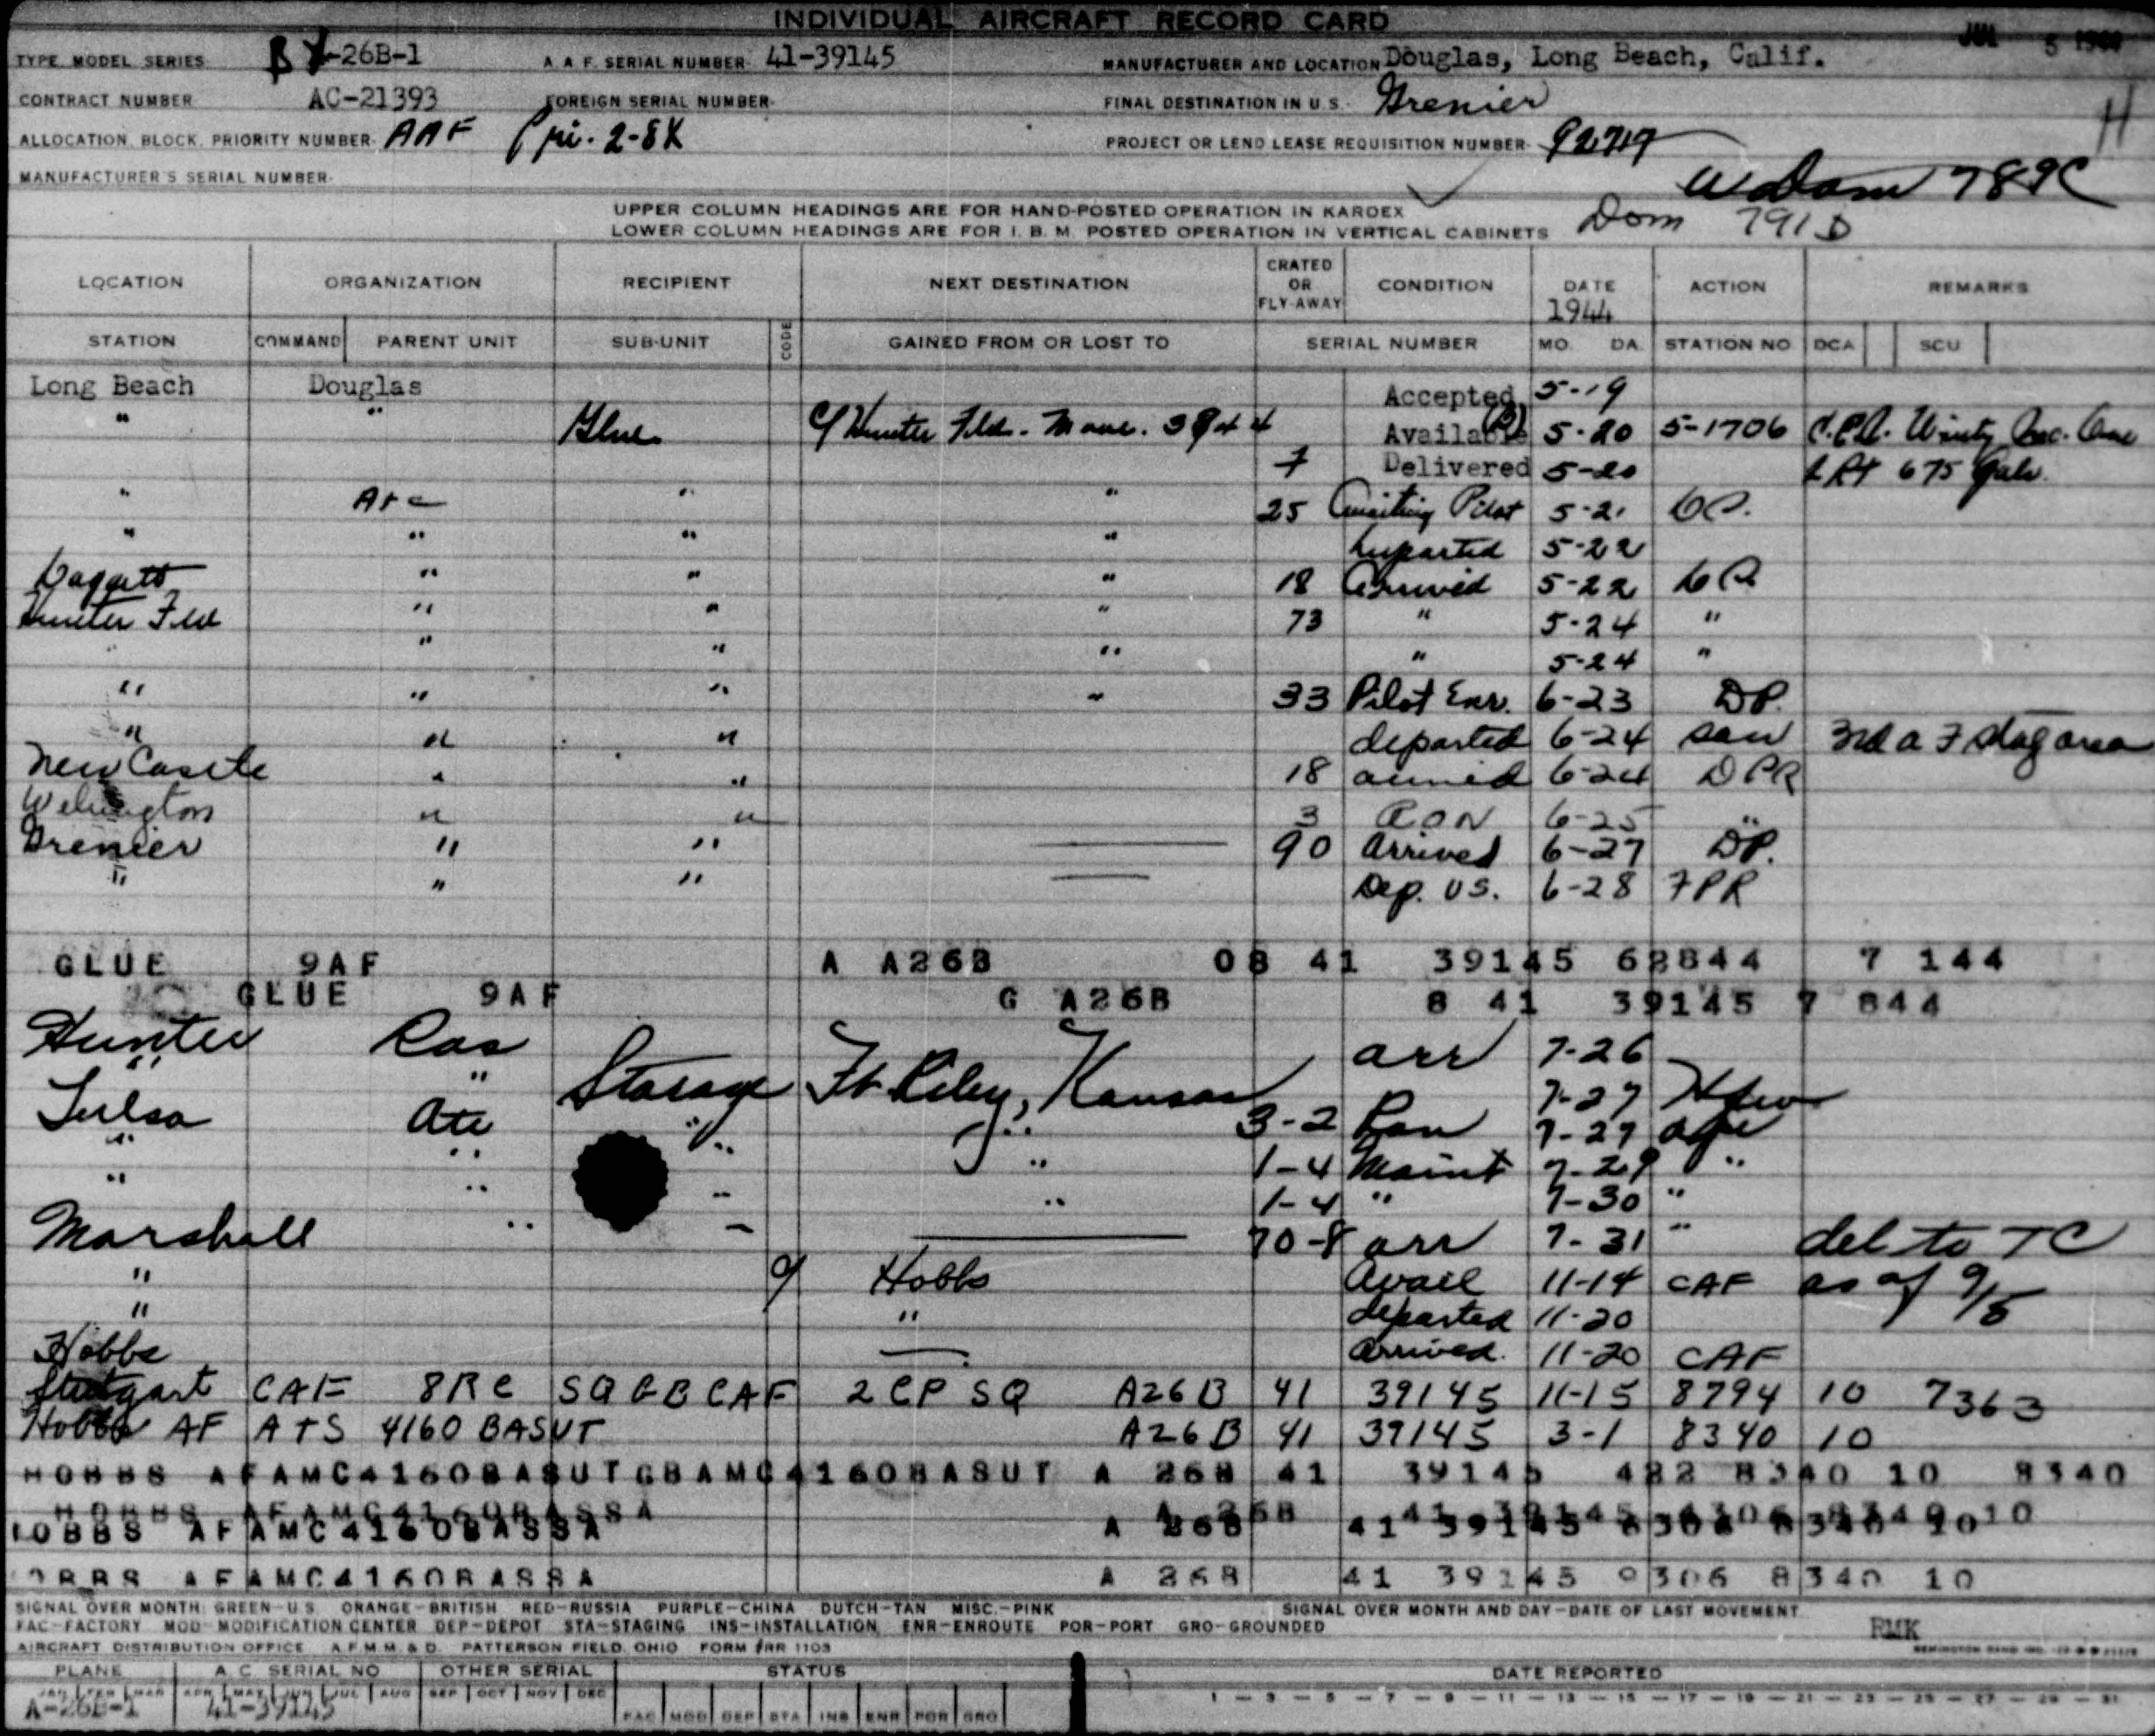 INDIVIDUAL AIRCRAFT RECORD CARD
JUL 5
TYPE MODEL SERIES B -26B-1 A A F SERIAL NUMBER 41-39145 MANUFACTURER AND LOCATION Douglas, Long Beach, Calif.
CONTRACT NUMBER AC-21393 FOREIGN SERIAL NUMBER FINAL DESTINATION IN U.S. Grenier
H
ALLOCATION BLOCK PRIORITY NUMBER AAF Pri. 2-8X PROJECT OR LEND LEASE REQUISITION NUMBER
MANUFACTURER'S SERIAL NUMBER
789C
UPPER COLUMN HEADINGS ARE FOR HAND-POSTED OPERATION IN KARDEX
LOWER COLUMN HEADINGS ARE FOR I. B. M. POSTED OPERATION IN VERTICAL CABINETS Dom 791D
LOCATION ORGANIZATION RECIPIENT NEXT DESTINATION CRATED OR FLY-AWAY CONDITION DATE 1944 ACTION REMARKS
STATION COMMAND PARENT UNIT SUB-UNIT CODE GAINED FROM OR LOST TO SERIAL NUMBER MO. DA. STATION NO DCA SCU
Long Beach Douglas Accepted 5-19
" " Glue Hunter Fld. 5-20 5-1706
7 Delivered 5-20 675 Gals.
" " " 25 Awaiting Pilot 5-21
" " " " Departed 5-22
Daggett " " " 18 Arrived 5-22
Hunter Fld " " " 73 " 5-24 "
" " " " 5-24 "
" " " " 33 Pilot Enr. 6-23 DP.
" " " departed 6-24 3rd A F stag area
New Castle " " 18 arrived 6-24 DPR
" " 3 RON 6-25 "
Grenier " " 90 Arrived 6-27 DP.
" " " Dep. US. 6-28 FPR
GLUE 9AF A A26B 08 41 39145 62844 7 144
GLUE 9AF G A26B 8 41 39145 7 844
Hunter arr 7-26
" " Storage Ft Riley, Kansas 7-27
Tulsa Atc " " 3-2 Ron 7-27
" " " " 1-4 Maint 7-29 "
" " " " 1-4 " 7-30 "
Marshall " 70-8 arr 7-31 " del to TC
" Hobbs Avail 11-14 CAF as of 9/5
" " departed 11-20
Hobbs Arrived. 11-20 CAF
Stuttgart CAF 8RC SQ GB CAF 2 CP SQ A26B 41 39145 11-15 8794 10 7363
Hobbs AF ATS 4160 BASUT A26B 41 39145 3-1 8340 10
HOBBS AFAMC4160BASUTGBAMC4160BASUT A 26B 41 39145 422 8340 10 8340
HOBBS AFAMC4160BASSA
AFAMC4160BASSA
AFAMC4160BASSA A 26B 41 39145 306 8340 10
SIGNAL OVER MONTH: GREEN-U.S. ORANGE-BRITISH RED-RUSSIA PURPLE-CHINA DUTCH-TAN MISC.-PINK SIGNAL OVER MONTH AND DAY-DATE OF LAST MOVEMENT
FAC-FACTORY MOD-MODIFICATION CENTER DEP-DEPOT STA-STAGING INS-INSTALLATION ENR-ENROUTE POR-PORT GRO-GROUNDED RMK
AIRCRAFT DISTRIBUTION OFFICE A.F.M M. & D. PATTERSON FIELD, OHIO FORM #RR 1103
PLANE A. C. SERIAL NO OTHER SERIAL STATUS DATE REPORTED
JAN FEB MAR APR MAY JUN JUL AUG SEP OCT NOV DEC
A-26B-1 41-39145
FAC MOD DEP STA INS ENR POR GRO
1 - 3 - 5 - 7 - 9 - 11 - 13 - 15 - 17 - 19 - 21 - 23 - 25 - 27 - 29 - 31